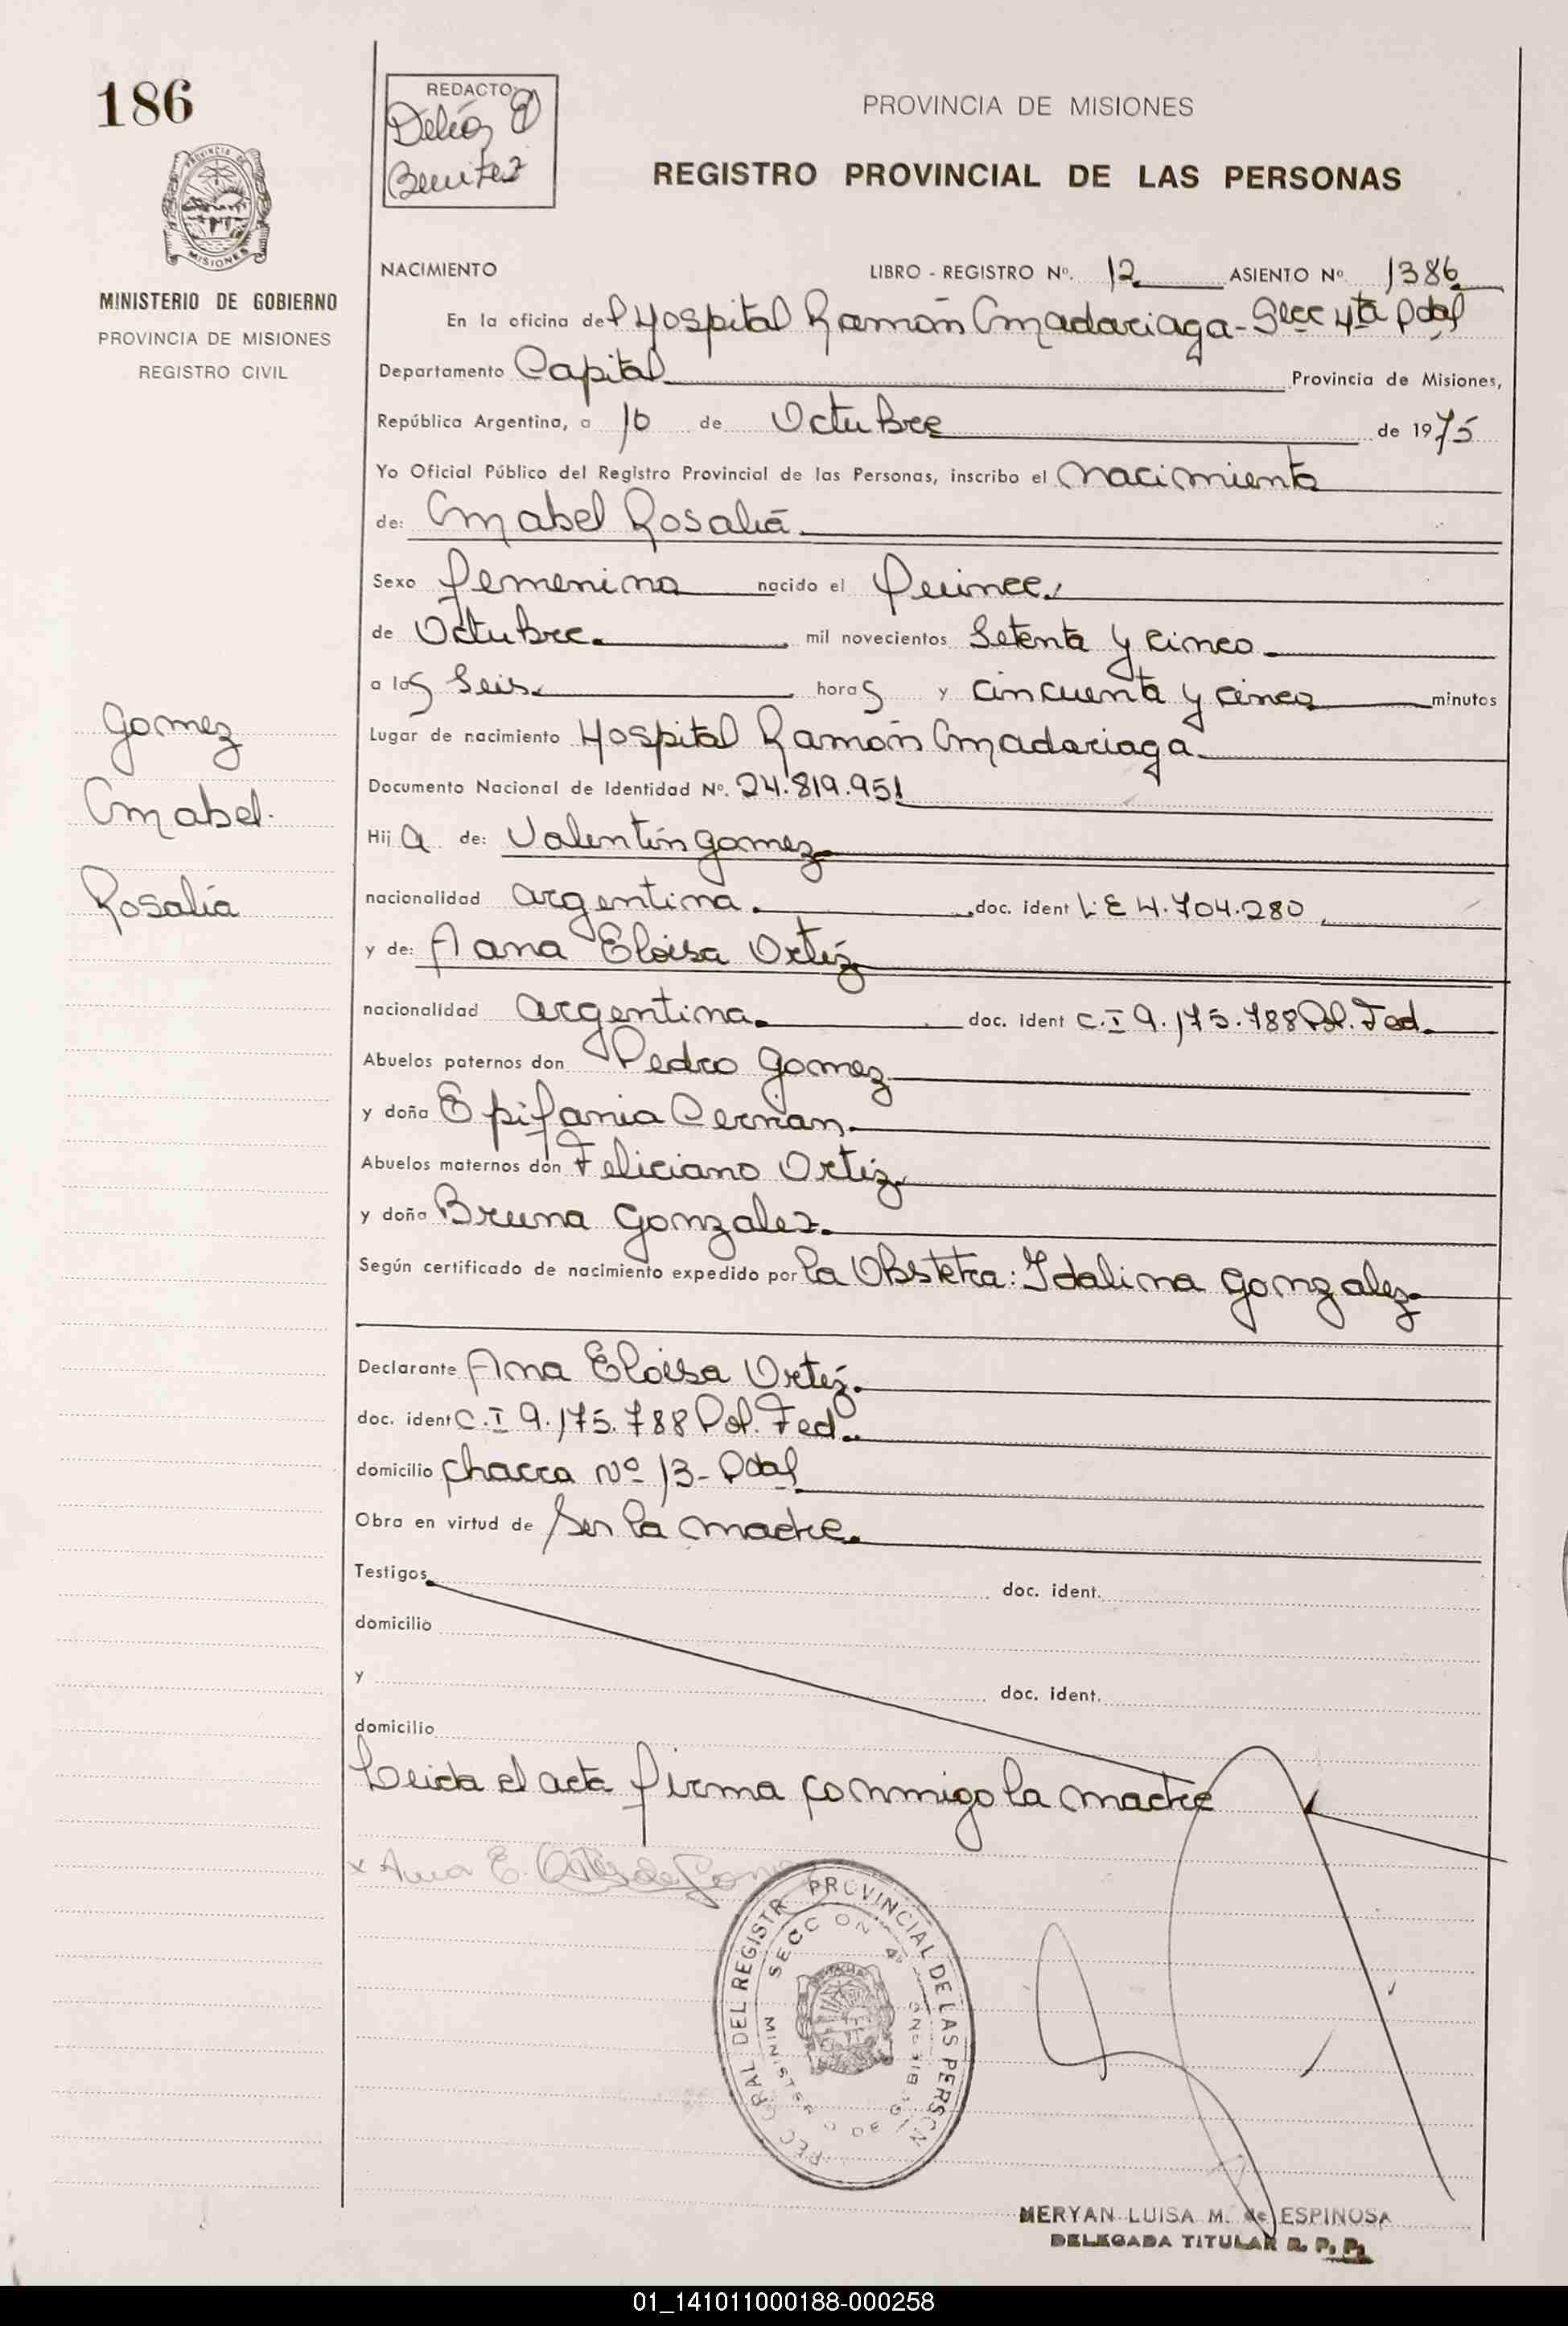 186
REDACTO:
Benitez
PROVINCIA DE MISIONES
REGISTRO PROVINCIAL DE LAS PERSONAS
PROVINCIA DE
MISIONES
MINISTERIO DE GOBIERNO
PROVINCIA DE MISIONES
REGISTRO CIVIL
NACIMIENTO LIBRO - REGISTRO Nº. 12 ASIENTO Nº 1386
En la oficina del Hospital Ramón Madariaga - Secc 4ta Pdas
Departamento Capital Provincia de Misiones,
República Argentina, a 16 de Octubre de 1975
Yo Oficial Público del Registro Provincial de las Personas, inscribo el nacimiento
de: Mabel Rosalia
Sexo femenino nacido el Quince
de Octubre. mil novecientos Setenta y cinco
a las Seis horas y cincuenta y cinco minutos
Lugar de nacimiento Hospital Ramón Madariaga
Documento Nacional de Identidad Nº. 24.819.951
Hija de: Valentín gomez
nacionalidad argentina. doc. ident L.E 4.704.280
y de: Aana Eloisa Ortiz
nacionalidad argentina. doc. ident C.I 9.175.788 Pol. Fed.
Abuelos paternos don Pedro gomez
y doña Epifania
Abuelos maternos don Feliciano Ortiz
y doña Bruna gonzalez.
Según certificado de nacimiento expedido por la Obstetra: Idalina gonzalez
Declarante Ana Eloisa Ortiz.
doc. ident C.I 9.175.788 Pol. Fed.
domicilio chacra Nº 13 - Pdas
Obra en virtud de Ser la madre.
Testigos doc. ident.
domicilio
y doc. ident.
domicilio
Leida el acta firma conmigo la madre
x Ana E. Ortiz de Gomez
gomez
Mabel.
Rosalía
PROVINCIAL DE LAS PERSON
DEL REGISTR
SECC ON 4ª
MERYAN LUISA M. de ESPINOSA
DELEGADA TITULAR R. P. P.
01_141011000188-000258